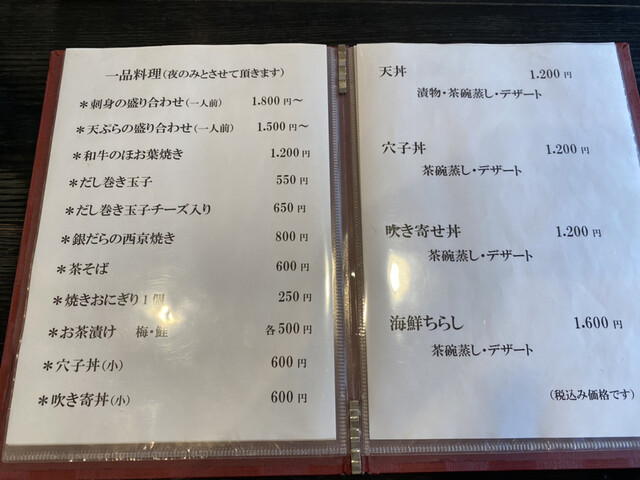 一品料理(夜のみとさせて頂きます)
＊刺身の盛り合わせ(一人前) 1.800円～
＊天ぷらの盛り合わせ(一人前) 1.500円～
＊和牛のほお葉焼き 1.200円
＊だし巻き玉子 550円
＊だし巻き玉子チーズ入り 650円
＊銀だらの西京焼き 800円
＊茶そば 600円
＊焼きおにぎり1個 250円
＊お茶漬け 梅・鮭 各500円
＊穴子丼(小) 600円
＊吹き寄丼(小) 600円
天丼 1.200円
漬物・茶碗蒸し・デザート
穴子丼 1.200円
茶碗蒸し・デザート
吹き寄せ丼 1.200円
茶碗蒸し・デザート
海鮮ちらし 1.600円
茶碗蒸し・デザート
(税込み価格です)